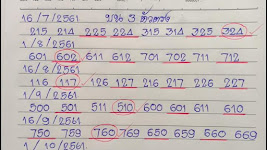 16/7/2561 บน 3 ตัวตรง
215 214 225 224 315 314 325 324
1/8/2561
601 602 611 612 701 702 711 712
16/8/2561
116 117 126 127 216 217 226 227
1/9/2561
500 501 511 510 600 601 611 610
16/9/2561
750 759 760 769 650 659 660 669
1/10/2561